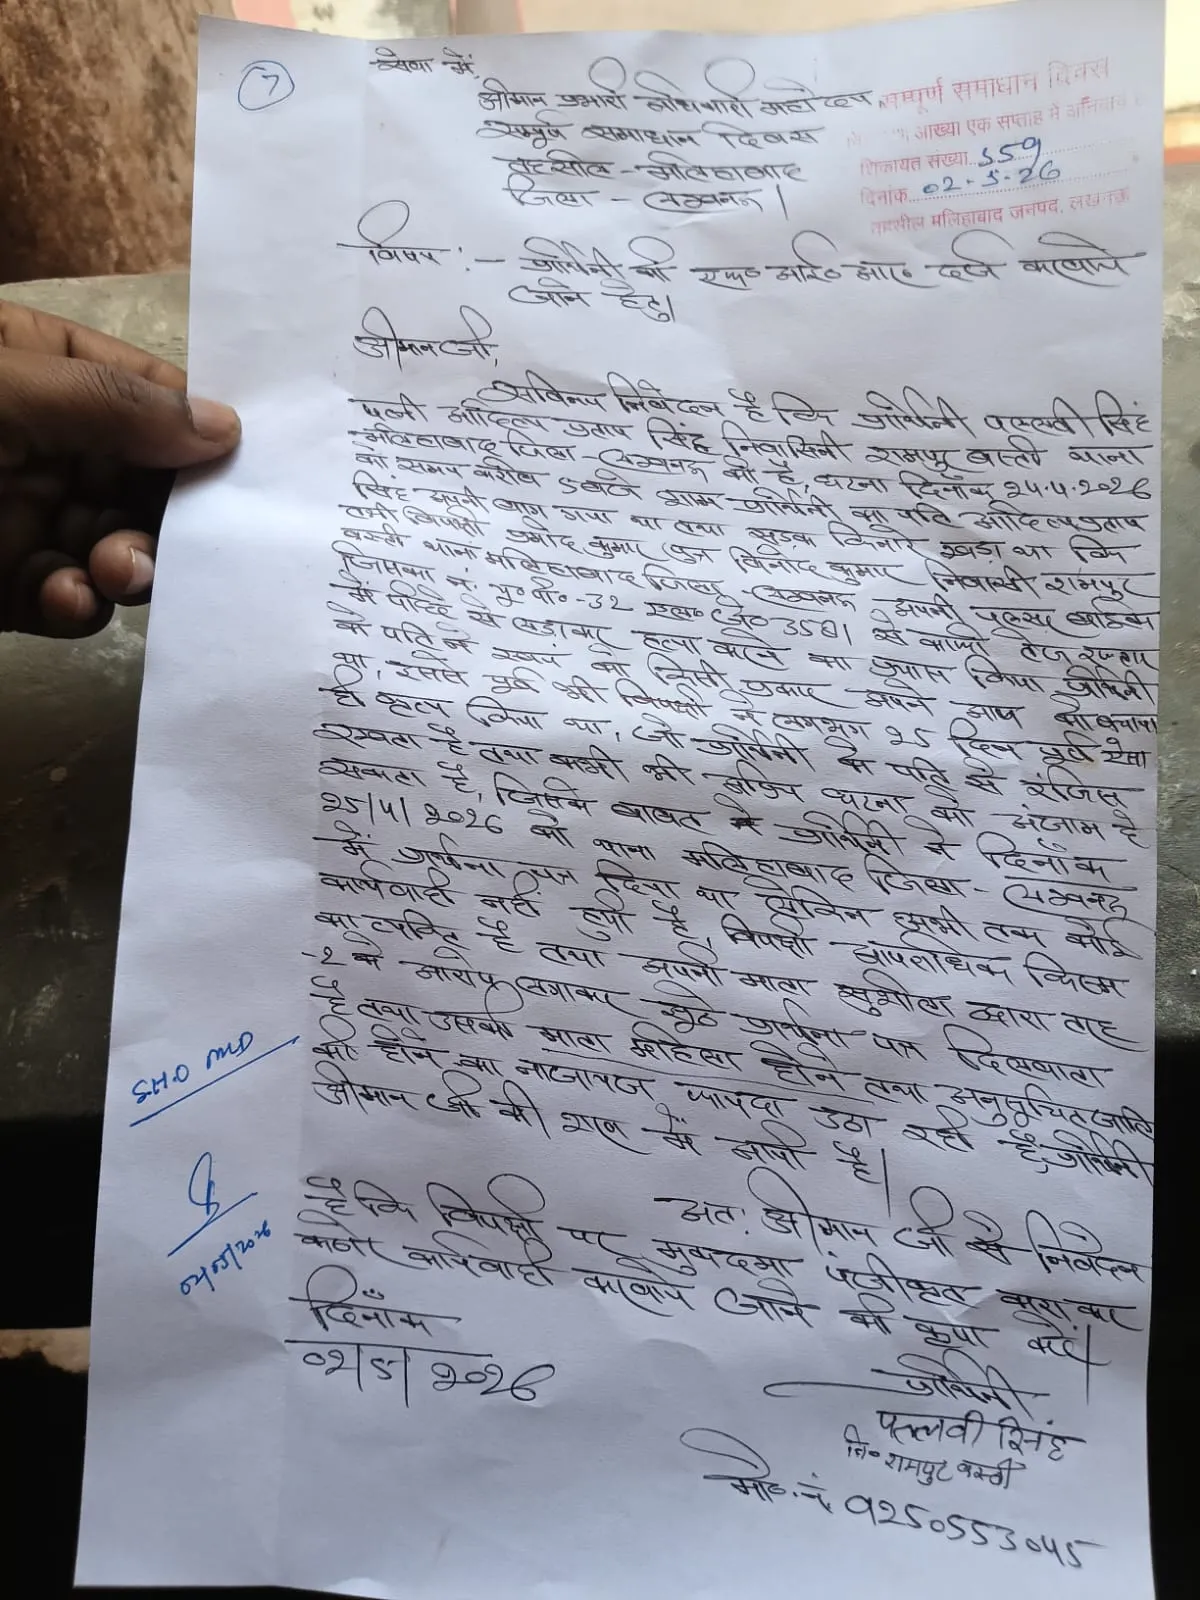 7
सेवा में,
श्रीमान प्रभारी अधिकारी महोदय,
सम्पूर्ण समाधान दिवस
तहसील - मलिहाबाद
जिला - लखनऊ।
सम्पूर्ण समाधान दिवस
आख्या एक सप्ताह में
शिकायत संख्या 559
दिनांक 02.5.26
तहसील मलिहाबाद जनपद, लखनऊ
विषय :- प्रार्थिनी की एफ० आई० आर० दर्ज कराये
जाने हेतु।
श्रीमान जी,
सविनय निवेदन है कि प्रार्थिनी पल्लवी सिंह
पत्नी आदित्य प्रताप सिंह निवासिनी रामपुर बस्ती थाना
मलिहाबाद जिला - लखनऊ की है, घटना दिनाँक 24.4.2026
को समय करीब 5 बजे शाम प्रार्थिनी का पति आदित्य प्रताप
सिंह अपनी बाग गया था तथा सड़क किनारे खड़ा था कि
तभी विपक्षी प्रमोद कुमार पुत्र विनोद कुमार निवासी रामपुर
बस्ती थाना मलिहाबाद जिला - लखनऊ अपनी पल्सर बाईक
जिसका नं. यू० पी० -32 एल० जे० 3581 से काफी तेज रफ्तार
में पीछे से लड़ाकर हत्या करने का प्रयास किया प्रार्थिनी
के पति ने स्वयं को किसी प्रकार अपने आप को बचाया
था, इससे पूर्व भी विपक्षी ने लगभग 25 दिन पूर्व ऐसा
ही कृत्य किया था, जो प्रार्थिनी के पति से रंजिस
रखता है तथा कभी भी अप्रिय घटना को अंजाम दे
सकता है, जिसके बावत प्रार्थिनी ने दिनाँक
25/4/2026 को थाना मलिहाबाद जिला - लखनऊ
में प्रार्थना पत्र दिया था लेकिन अभी तक कोई
कार्यवाही नहीं हुयी है, विपक्षी आपराधिक किस्म
का व्यक्ति है तथा अपनी माता सुशीला द्वारा तरह
-2 के आरोप लगाकर झूठे प्रार्थना पत्र दिलवाता
है तथा उसकी माता महिला होने तथा अनुसूचित जाति
की होने का नाजायज फायदा उठा रही है, प्रार्थिनी
श्रीमान जी की शरण में आयी है।
S.H.O MLD
अतः श्रीमान जी से निवेदन
है कि विपक्षी पर मुकदमा पंजीकृत कराकर
कठोर कार्यवाही कराये जाने की कृपा करें।
02/05/2026
दिनाँक
02/5/2026
प्रार्थिनी
पल्लवी सिंह
नि० रामपुर बस्ती
मो०. नं. 9250553045